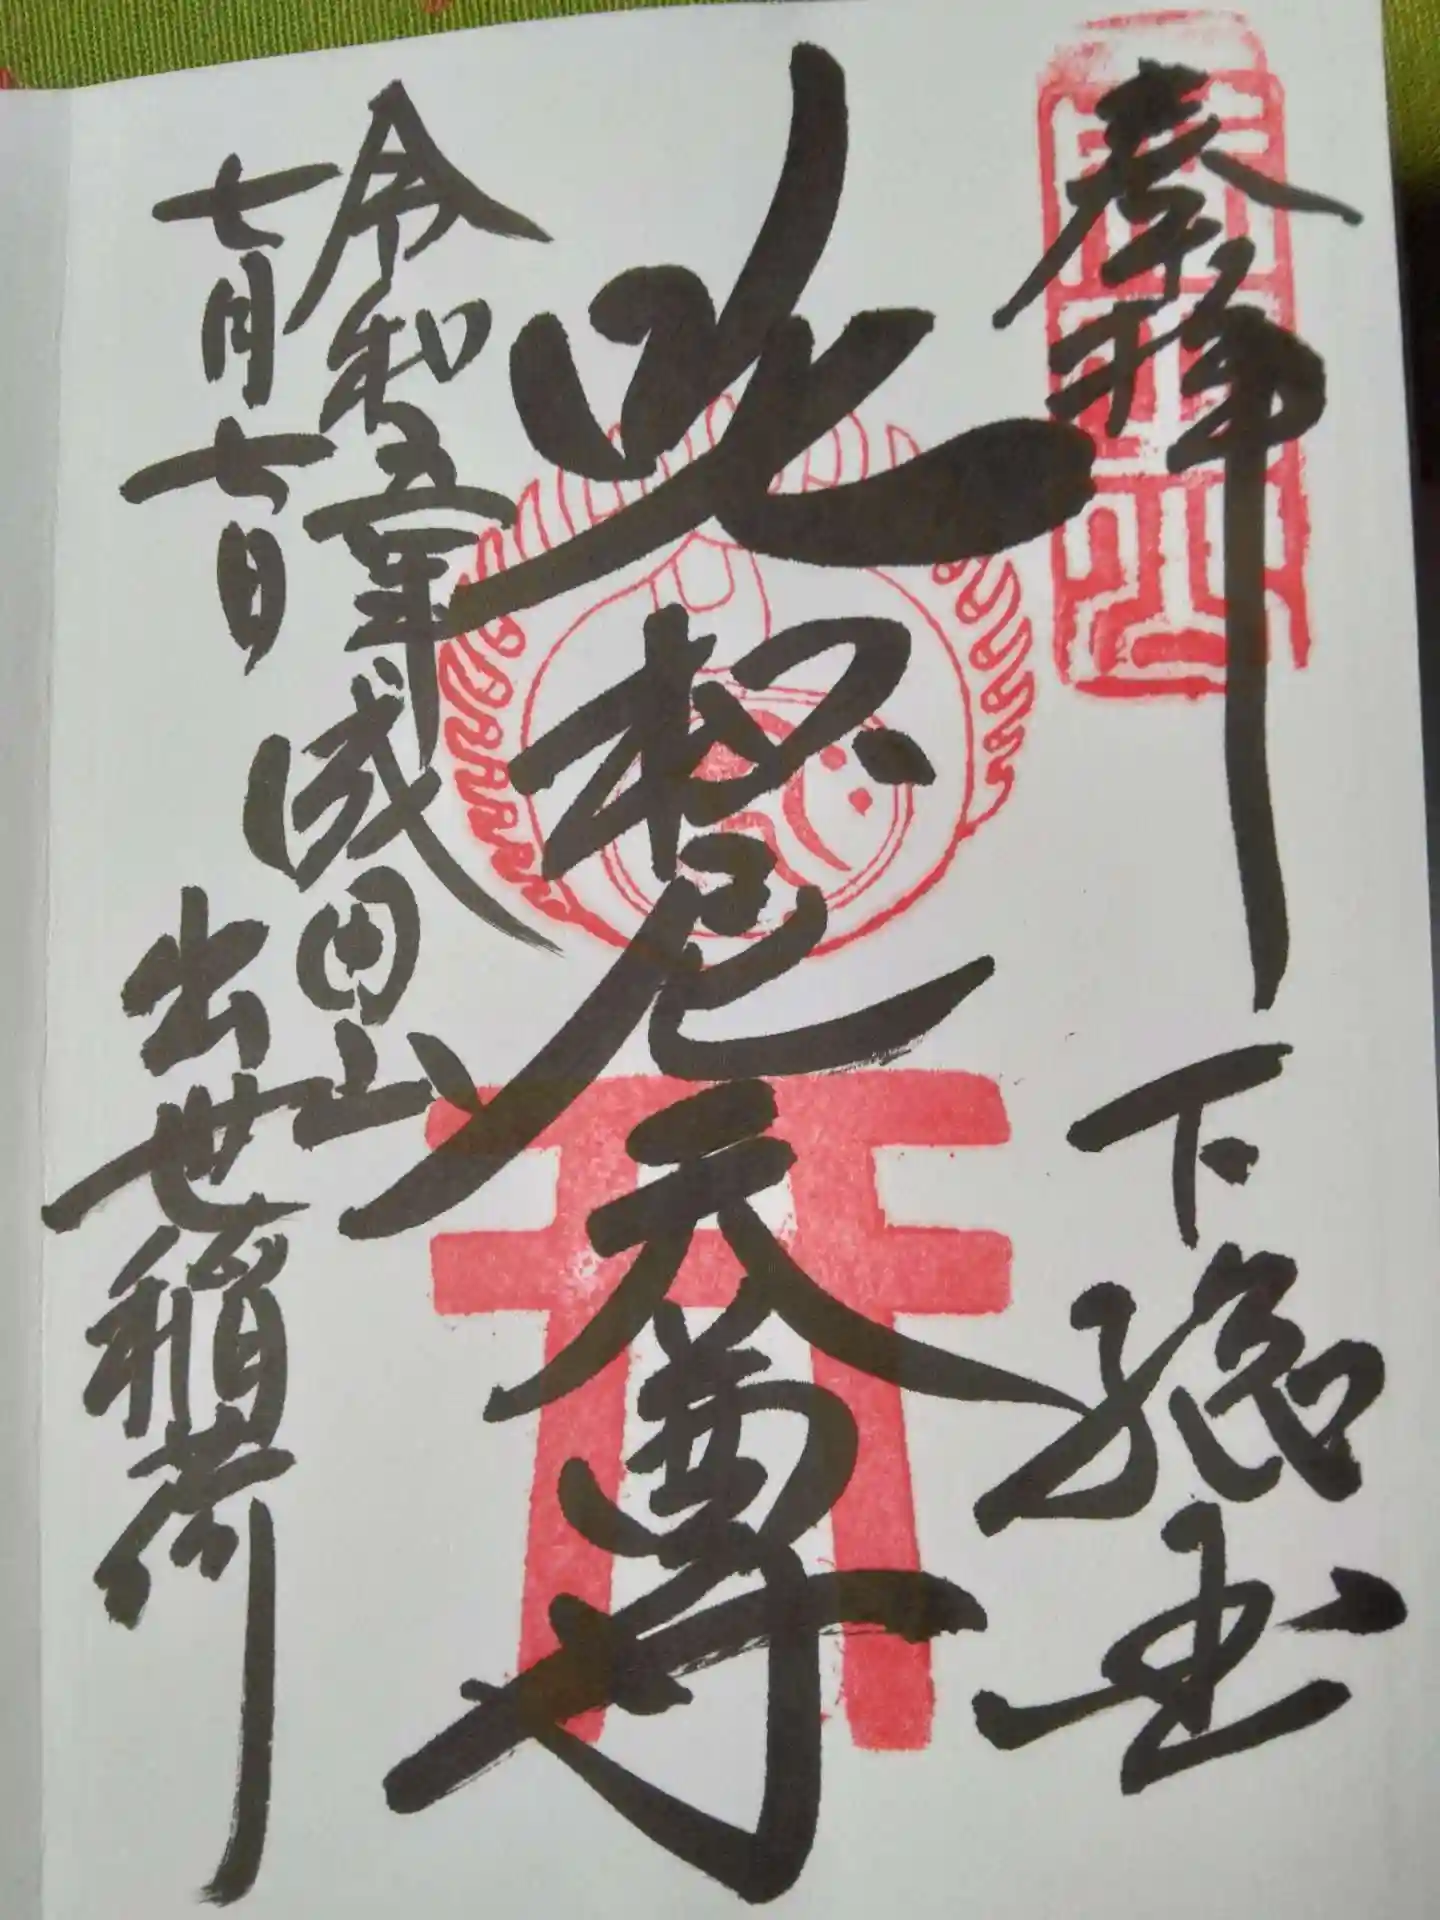 奉拝
下総国
吒枳尼天尊
令和五年
成田山
七月七日
出世稲荷